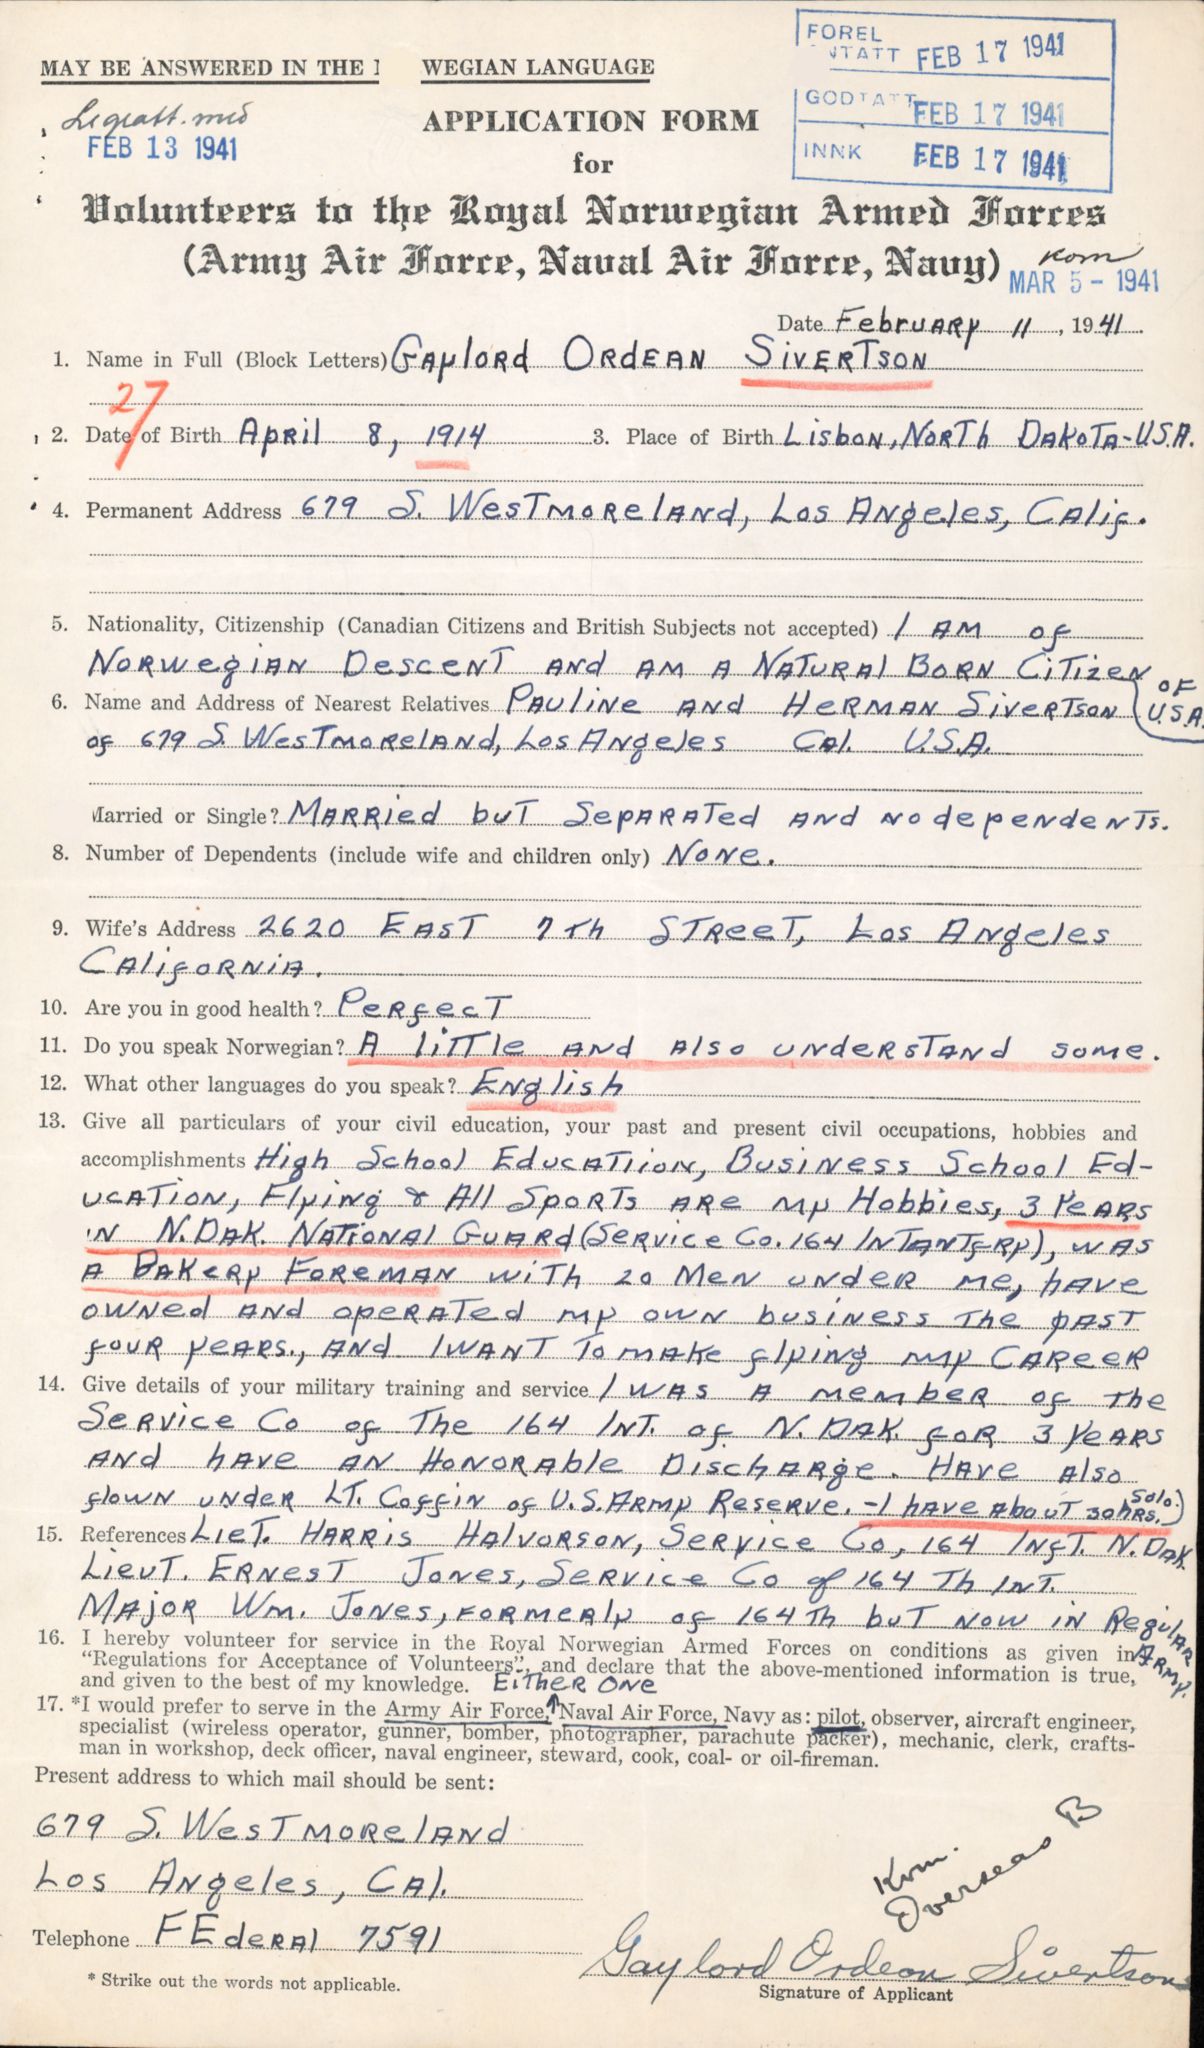 MAY BE ANSWERED IN THE WEGIAN LANGUAGE
FOREL
NTATT FEB 17 1941
GODTATT FEB 17 1941
INNK FEB 17 1941
FEB 13 1941
APPLICATION FORM
for
Volunteers to the Royal Norwegian Armed Forces
(Army Air Force, Naval Air Force, Navy)
Kom
MAR 5 - 1941
Date February 11, 1941.
1. Name in Full (Block Letters) Gaylord Ordean Sivertson
27
2. Date of Birth April 8, 1914 3. Place of Birth Lisbon, North Dakota-U.S.A.
4. Permanent Address 679 S. Westmoreland, Los Angeles, Calif.
5. Nationality, Citizenship (Canadian Citizens and British Subjects not accepted) I am of
Norwegian Descent and am a Natural Born Citizen of U.S.A.
6. Name and Address of Nearest Relatives Pauline and Herman Sivertson
of 679 S. Westmoreland, Los Angeles Cal. U.S.A.
Married or Single? Married but separated and no dependents.
8. Number of Dependents (include wife and children only) None.
9. Wife's Address 2620 East 7th Street, Los Angeles
California.
10. Are you in good health? Perfect
11. Do you speak Norwegian? A little and also understand some.
12. What other languages do you speak? English
13. Give all particulars of your civil education, your past and present civil occupations, hobbies and
accomplishments High School Educatiion, Business School Ed-
ucation, Flying & All Sports are my Hobbies, 3 years
in N.Dak. National Guard (Service Co. 164 Intantfry), was
a Bakery Foreman with 20 men under me, have
owned and operated my own business the past
four years., and I want to make flying my career
14. Give details of your military training and service I was a member of the
Service Co of the 164 Int. of N. Dak. for 3 years
and have an Honorable Discharge. Have also
flown under Lt. Coffin of U.S. Army Reserve. - I have about 30 hrs. solo.)
15. References Liet. Harris Halvorson, Service Co, 164 Inft. N. Dak
Lieut. Ernest Jones, Service Co of 164 Th Int.
Major Wm. Jones, formerly of 164th but now in Regular Army.
16. I hereby volunteer for service in the Royal Norwegian Armed Forces on conditions as given in
"Regulations for Acceptance of Volunteers", and declare that the above-mentioned information is true,
and given to the best of my knowledge. Either one
17. *I would prefer to serve in the Army Air Force, Naval Air Force, Navy as: pilot, observer, aircraft engineer,
specialist (wireless operator, gunner, bomber, photographer, parachute packer), mechanic, clerk, crafts-
man in workshop, deck officer, naval engineer, steward, cook, coal- or oil-fireman.
Present address to which mail should be sent:
679 S. Westmoreland
Los Angeles, Cal.
Telephone FEderal 7591
Kom.
Overseas B
* Strike out the words not applicable.
Gaylord Ordean Sivertson
Signature of Applicant